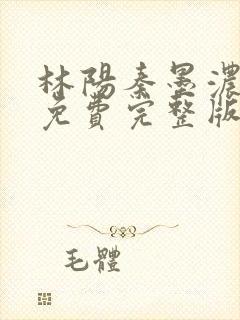 林陽秦墨濃
免費完整版
毛體